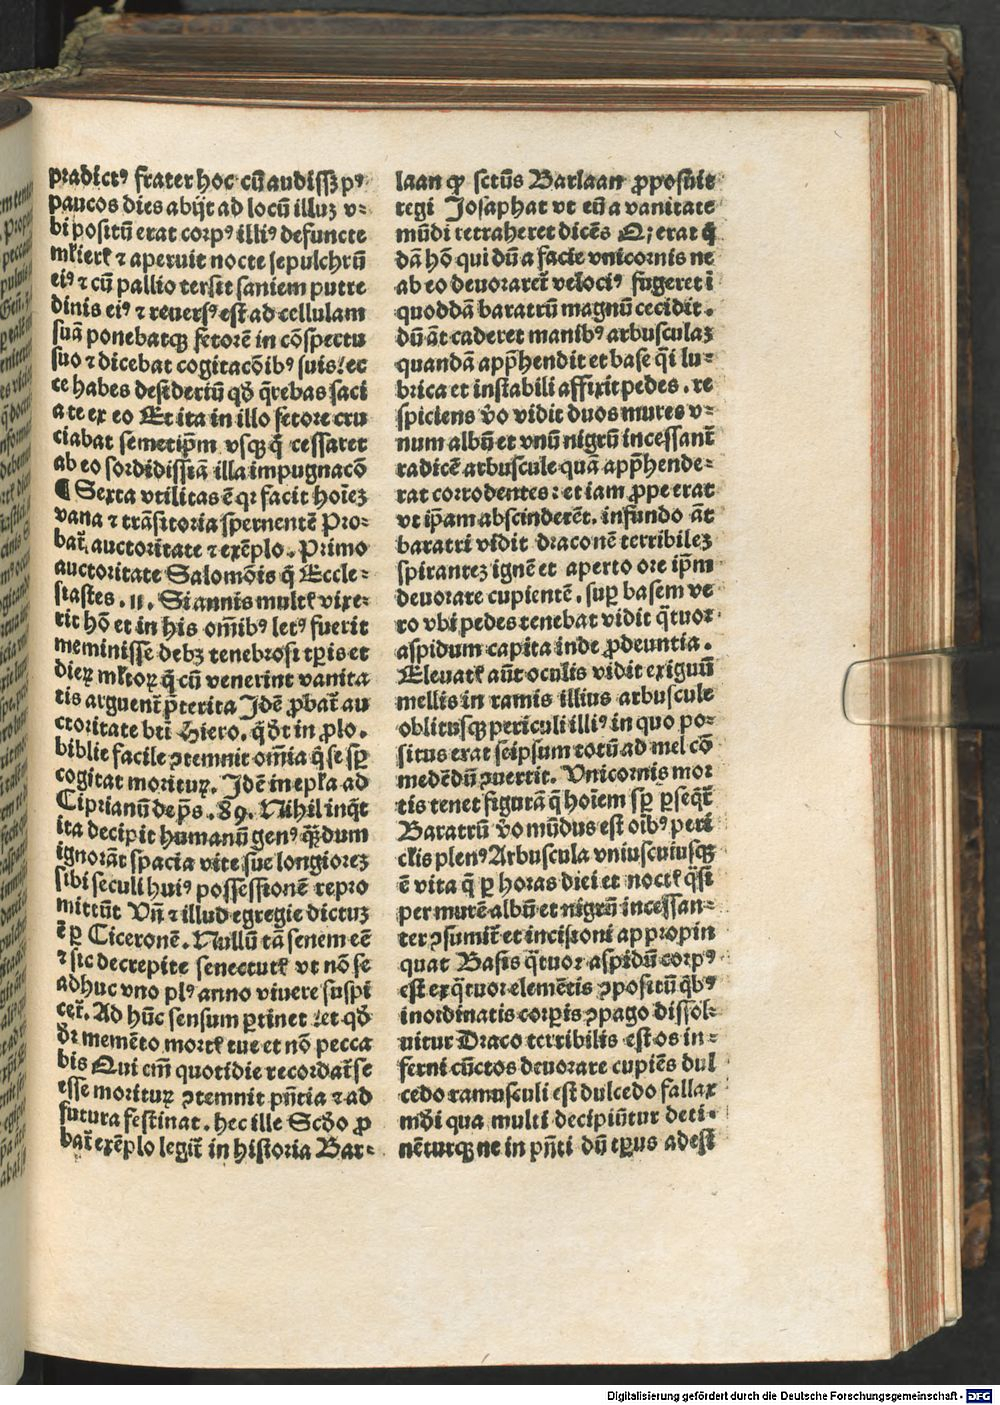 pradictꝰ frater hoc cū audissꝫ pꝰ
paucos dies abijt ad locū illuꝫ v⸗
bi positū erat corpꝰ illiꝰ defuncte
ml̓ierꝭ ⁊ aperuit nocte sepulchrū
eiꝰ ⁊ cū pallio tersit saniem putre
dinis eiꝰ ⁊ reuersꝰ est ad cellulam
suā ponebatqꝫ fetorē in cōspectu
suo ⁊ dicebat cogitacōibꝰ suis: ec
ce habes desideriū qd̓ q̄rebas saci
a te ex eo Et ita in illo fetore cru
ciabat semetip̄m vsqꝫ q̄ cessaret
ab eo sordidissīa illa impugnacō
¶ Sexta vtilitas ē qꝛ facit hoīeꝫ
vana ⁊ trāsitoria spernentē Pro⸗
bat᷑ auctoritate ⁊ exēplo. Primo
auctoritate Salomōis q̄ Eccle⸗
siastes .11. Si annis multꝭ vixe⸗
rit hō et in his om̄ibꝰ letꝰ fuerit
meminisse debꝫ tenebrosi tꝑis et
dieꝝ ml̓toꝝ q̄ cū venerint vanita
tis arguent᷑ p̄terita Idē ꝓbat᷑ au
ctoritate bt̄i Hiero. q̓ d̓t in ꝓlo.
biblie facile ꝯtemnit om̄ia q̓ se sꝑ
cogitat morituꝝ. Idē in epl̓a ad
Ciprianū de p̄s. 89. Nihil inq̓t
ita decipit humanū genꝰ q̄ꝫ dum
ignorāt spacia vite sue longioreꝫ
sibi seculi huiꝰ possessionē repro
mittūt Vn̄ ⁊ illud egregie dictuꝫ
ē ꝑ Ciceronē. Nullū tā senem eē
⁊ sic decrepite senectutꝭ vt nō se
adhuc vno plꝰ anno viuere suspi
cet᷑. Ad hūc sensum ꝑtinet et qd̓
dr̄ memēto mortꝭ tue et nō pecca
bis Qui em̄ quotidie recordat᷑ se
esse morituꝝ ꝯtemnit pn̄tia ⁊ ad
futura festinat. hec ille Scd̓o ꝓ
bat᷑ exēplo legit᷑ in historia Bar⸗
laan ꝙ sctūs Barlaan ꝓposuit
regi Josaphat vt eū a vanitate
mūdi retraheret dicēs Qꝫ erat q̄
dā hō qui dū a facie vnicornis ne
ab eo deuoraret᷑ velociꝰ fugeret ī
quoddā baratrū magnū cecidit.
dū āt caderet manibꝰ arbusculaꝫ
quandā app̄hendit et base q̄i lu⸗
brica et instabili affixit pedes. re
spiciens v̓o vidit duos mures v⸗
num albū et vnū nigrū incessant᷑
radicē arbuscule quā app̄hende⸗
rat corrodentes: et iam ꝓpe erat
vt ip̄am abscinderēt. in fundo āt
baratri vidit draconē terribileꝫ
spiranteꝫ ignē et aperto ore ip̄m
deuorare cupientē. suꝑ basem ve
ro vbi pedes tenebat vidit q̄tuor
aspidum capita inde ꝓdeuntia.
Eleuatꝭ aūt oculis vidit exiguū
mellis in ramis illius arbuscule
oblitusqꝫ periculi illiꝰ in quo po⸗
situs erat seipsum totū ad mel cō
medēdū ꝯuertit. Vnicornis mor
tis tenet figurā q̄ hoīem sꝑ ꝑseq̄t᷑
Baratrū v̓o mūdus est oībꝰ peri
cl̓is plenꝰ Arbuscula vniuscuiusqꝫ
ē vita q̄ ꝑ horas diei et noctꝭ q̓si
per murē albū et nigrū incessan⸗
ter ꝯsumit᷑ et incisioni appropin
quat Basis q̄tuor aspidū corpꝰ
est ex q̄tuor elemētis ꝯpositū q̓bꝰ
inordinatis corꝑis ꝯpago dissol⸗
uitur Draco terribilis est os in⸗
ferni cūctos deuorare cupiēs dul
cedo ramusculi est dulcedo fallax
mūdi qua multi decipiūtur deti⸗
nēturqꝫ ne in pn̄ti dū tꝑus adest
Digitalisierung gefördert durch die Deutsche Forschungsgemeinschaft - DFG